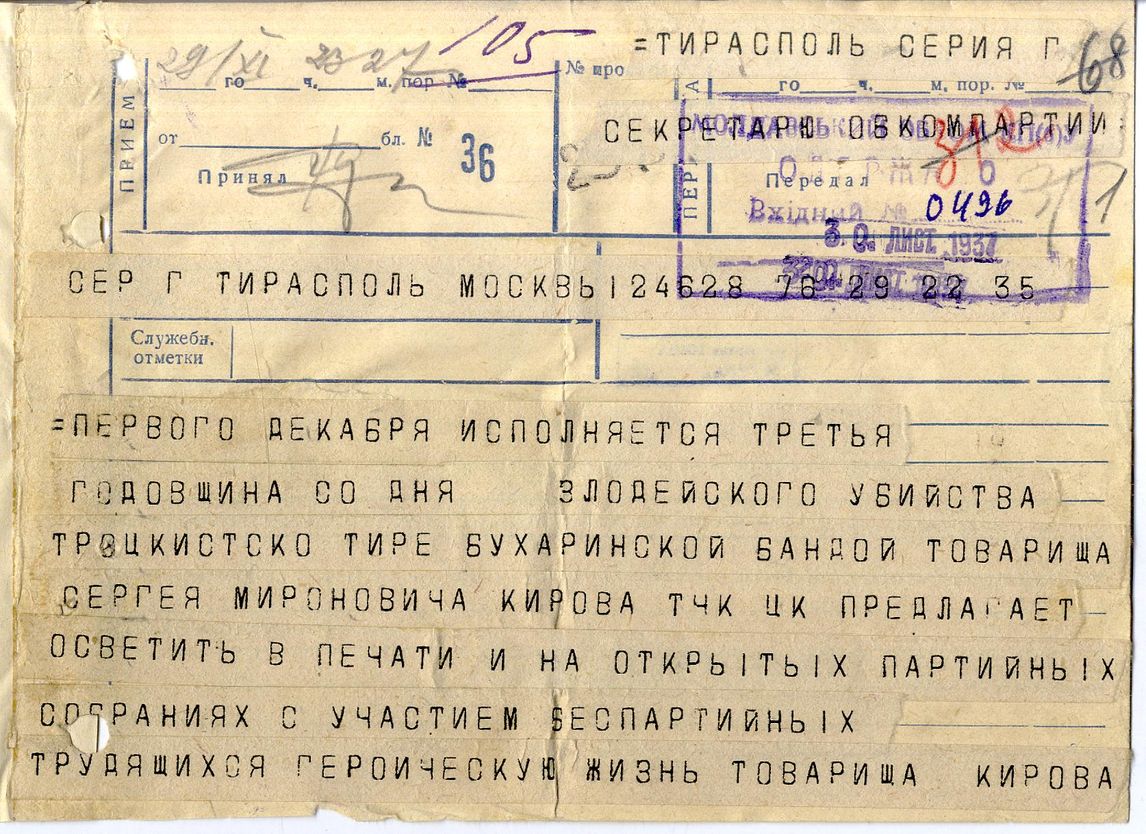 =ТИРАСПОЛЬ СЕРИЯ Г 68
29/XI 23 27 105
го ч. м. пор. №
го ч. м. пор. №
ПРИЕМ
СЕКРЕТАРЮ ОБКОМПАРТИИ
от бл. № 36
Принял
Передал
Вхідний № 0496
30 ЛИСТ 1937
СЕР Г ТИРАСПОЛЬ МОСКВЫ 124628 76 29 22 35
Служебн.
отметки
=ПЕРВОГО ДЕКАБРЯ ИСПОЛНЯЕТСЯ ТРЕТЬЯ
ГОДОВЩИНА СО ДНЯ ЗЛОДЕЙСКОГО УБИЙСТВА
ТРОЦКИСТСКО ТИРЕ БУХАРИНСКОЙ БАНДОЙ ТОВАРИЩА
СЕРГЕЯ МИРОНОВИЧА КИРОВА ТЧК ЦК ПРЕДЛАГАЕТ
ОСВЕТИТЬ В ПЕЧАТИ И НА ОТКРЫТЫХ ПАРТИЙНЫХ
СОБРАНИЯХ С УЧАСТИЕМ БЕСПАРТИЙНЫХ
ТРУДЯЩИХСЯ ГЕРОИЧЕСКУЮ ЖИЗНЬ ТОВАРИЩА КИРОВА